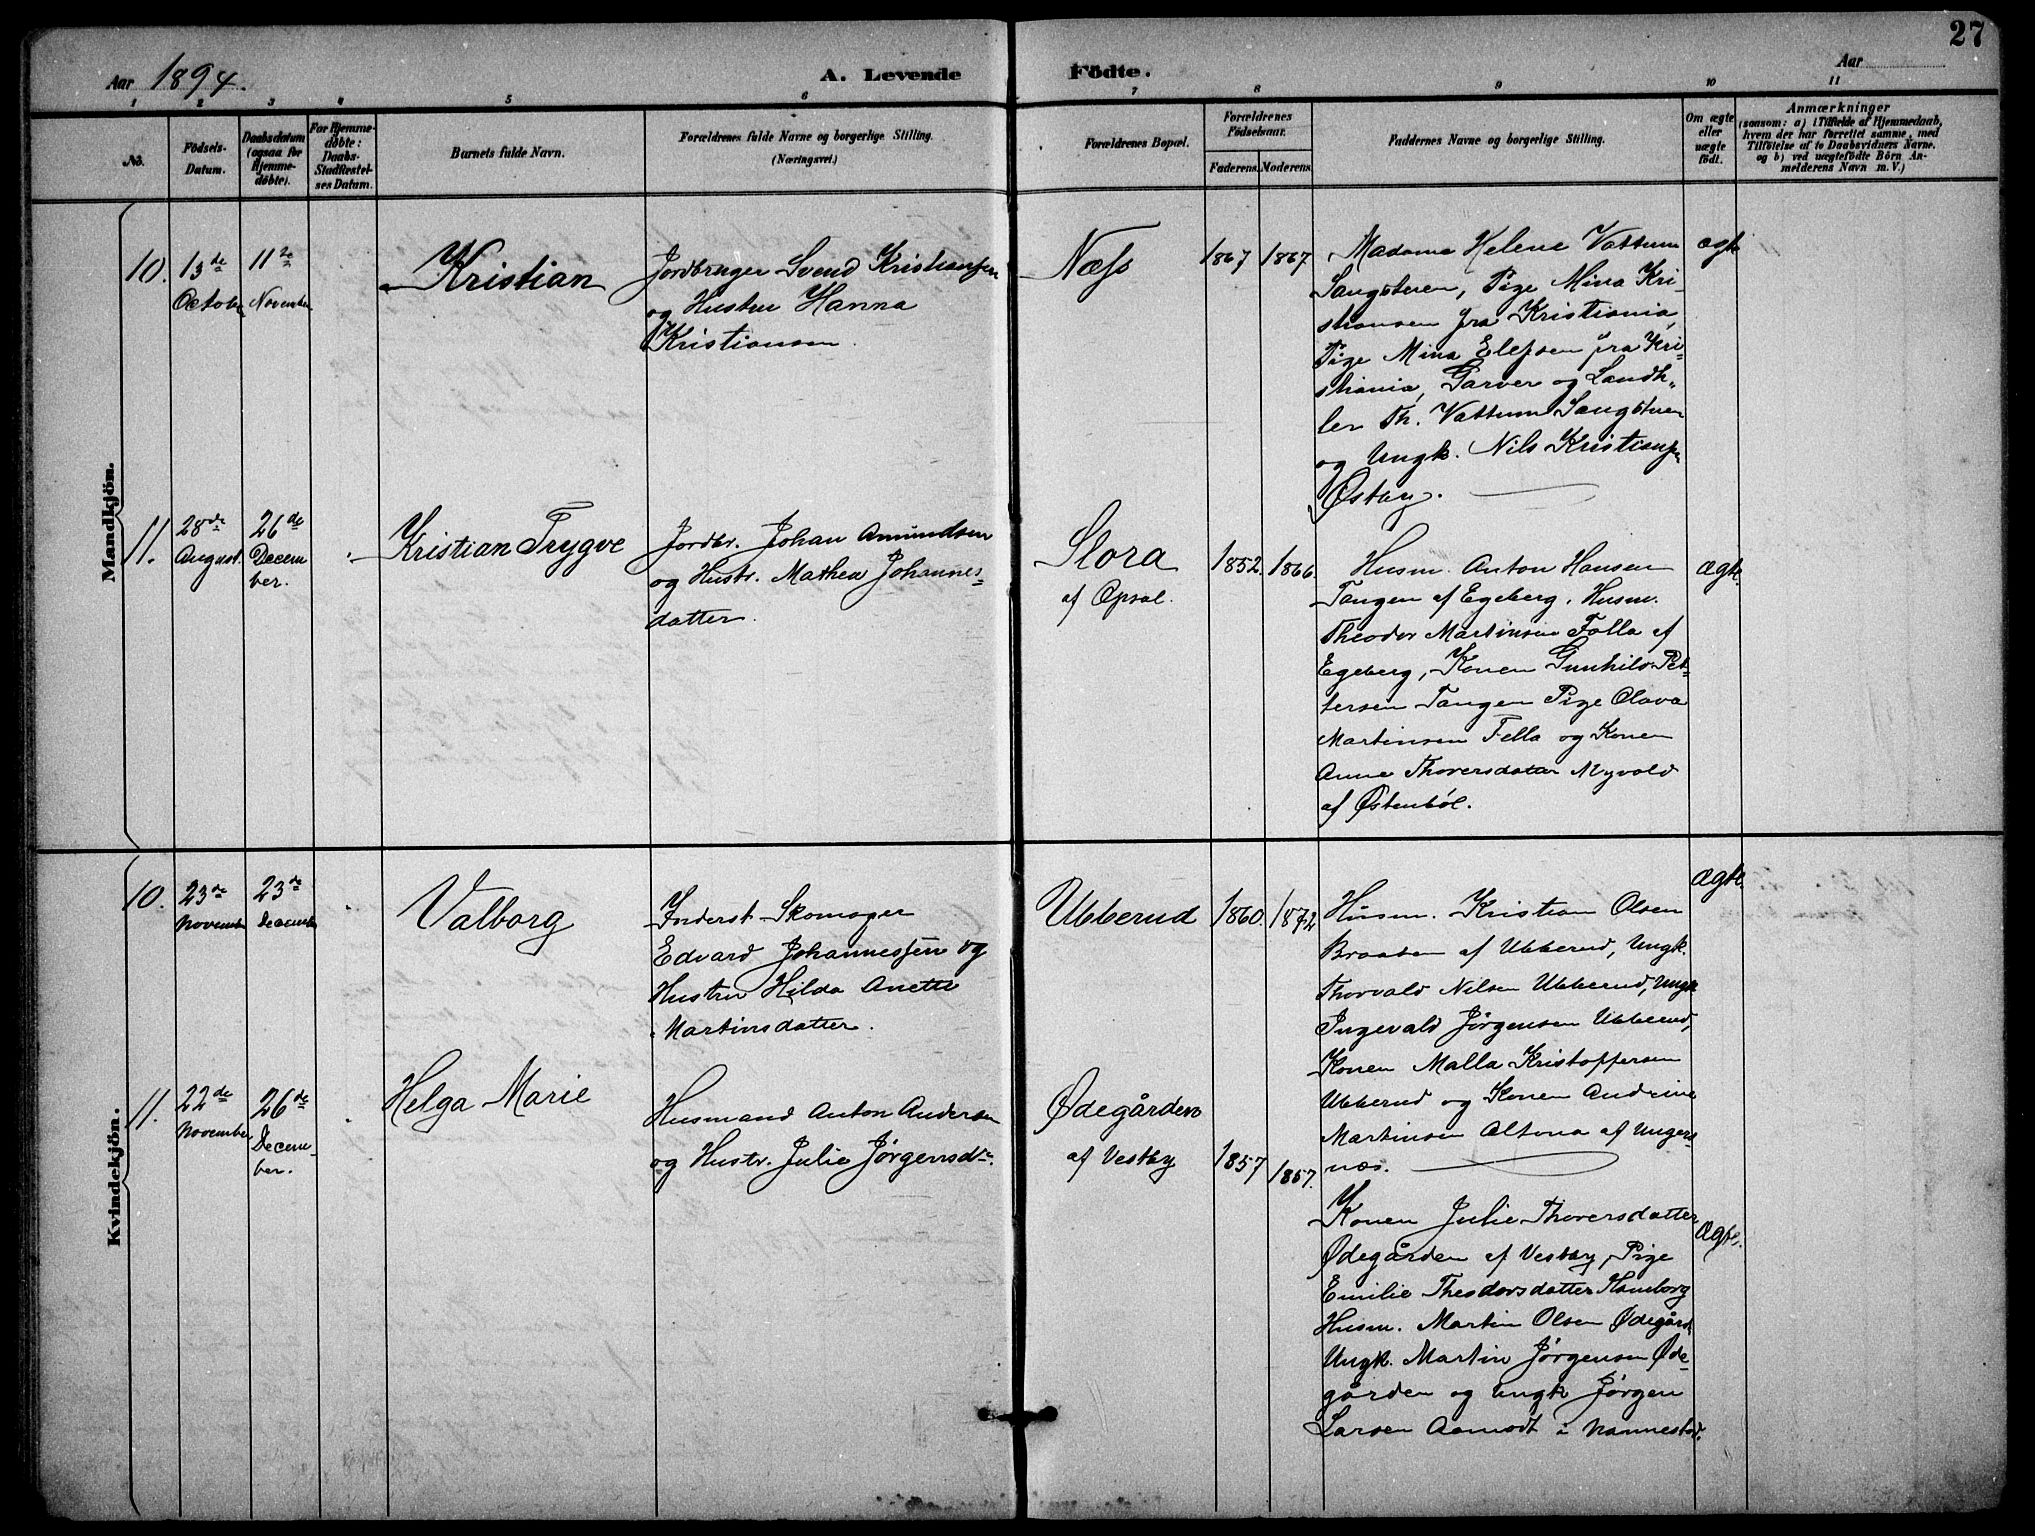 27
Aar 1894.
A. Levende Födte.
Aar
1 2 3 4 5 6 7 8 9 10 11
No.
Födsels-
Datum.
Daabsdatum
(ogsaa for
Hjemme-
døbte).
For Hjemme-
døbte:
Daabs-
Stadfæstel-
ses Datum.
Barnets fulde Navn.
Forældrenes fulde Navne og borgerlige Stilling.
(Næringsvei.)
Forældrenes Bopæl.
Forældrenes
Fødselsaar.
Faderens. Moderens.
Faddernes Navne og borgerlige Stilling.
Om ægte
eller
uægte
født.
Anmærkninger
(saasom: a) i Tilfælde af Hjemmedaab,
hvem der har forrettet samme, med
Tilføielse af to Daabsvidners Navne,
og b) ved uægtefødte Børn An-
melderens Navn m. V.)
Mandkjön.
10.
13de
October
11te
November
Kristian
Jordbruger Svend Kristiansen
og Hustru Hanna
Kristiansen.
Næss
1867 1867
Madama Helene Vattum
Langsteren, Pige Mina Kri-
stiansen fra Kristiania,
Pige Mina Elefsen fra Kri-
stiania, Garver og Landh.-
ler Th. Vattum
og Ungk. Nils Kristiansen
Østby.
ægte
11.
28de
August.
26de
Decem-
ber.
Kristian Trygve
Jordbr. Johan Amundsen
og Hustr. Mathea Johannes-
datter.
Slora
af Opsal.
1852. 1866.
Husm. Anton Hansen
Tangen af Egeberg, Husm.
Theodor Martinsen Folla af
Egeberg, Konen Gunhild Pet-
tersen Tangen Pige Olava
Martinsen Fella og Konen
Anne Thoversdatter Myvold
af Østenböl.
ægte.
Kvindekjön.
10.
23de
November
23de
December
Valborg
Inderst Skomager
Edvard Johannessen og
Hustru Hilda Anette
Martinsdatter.
Ubberud
1860. 1872
Husm. Kristian Olsen
Braaten af Ubberud, Ungk.
Thorvald Nilsen Ubberud, Ungk
Ingevald Jørgensen Ubberud,
Konen Malla Kristoffersen
Ubberud og Konen Andrine
Martinsen Altona af Ungers
næs.
ægte.
11.
22de
November
26de
Decem-
ber.
Helga Marie
Husmand Anton Andersen
og Hustr. Julie Jørgensdr.
Ødegården
af Vestby
1857 1857.
Konen Julie Thoversdatter
Ødegården af Vestby, Pige
Emilie Theodorsdatter Hamborg
Husm. Martin Olsen Ødegård
Ungk. Martin Jørgensen Øde-
gården og Ungk Jørgen
Larsen Aamodt i Nannestad.
ægte.